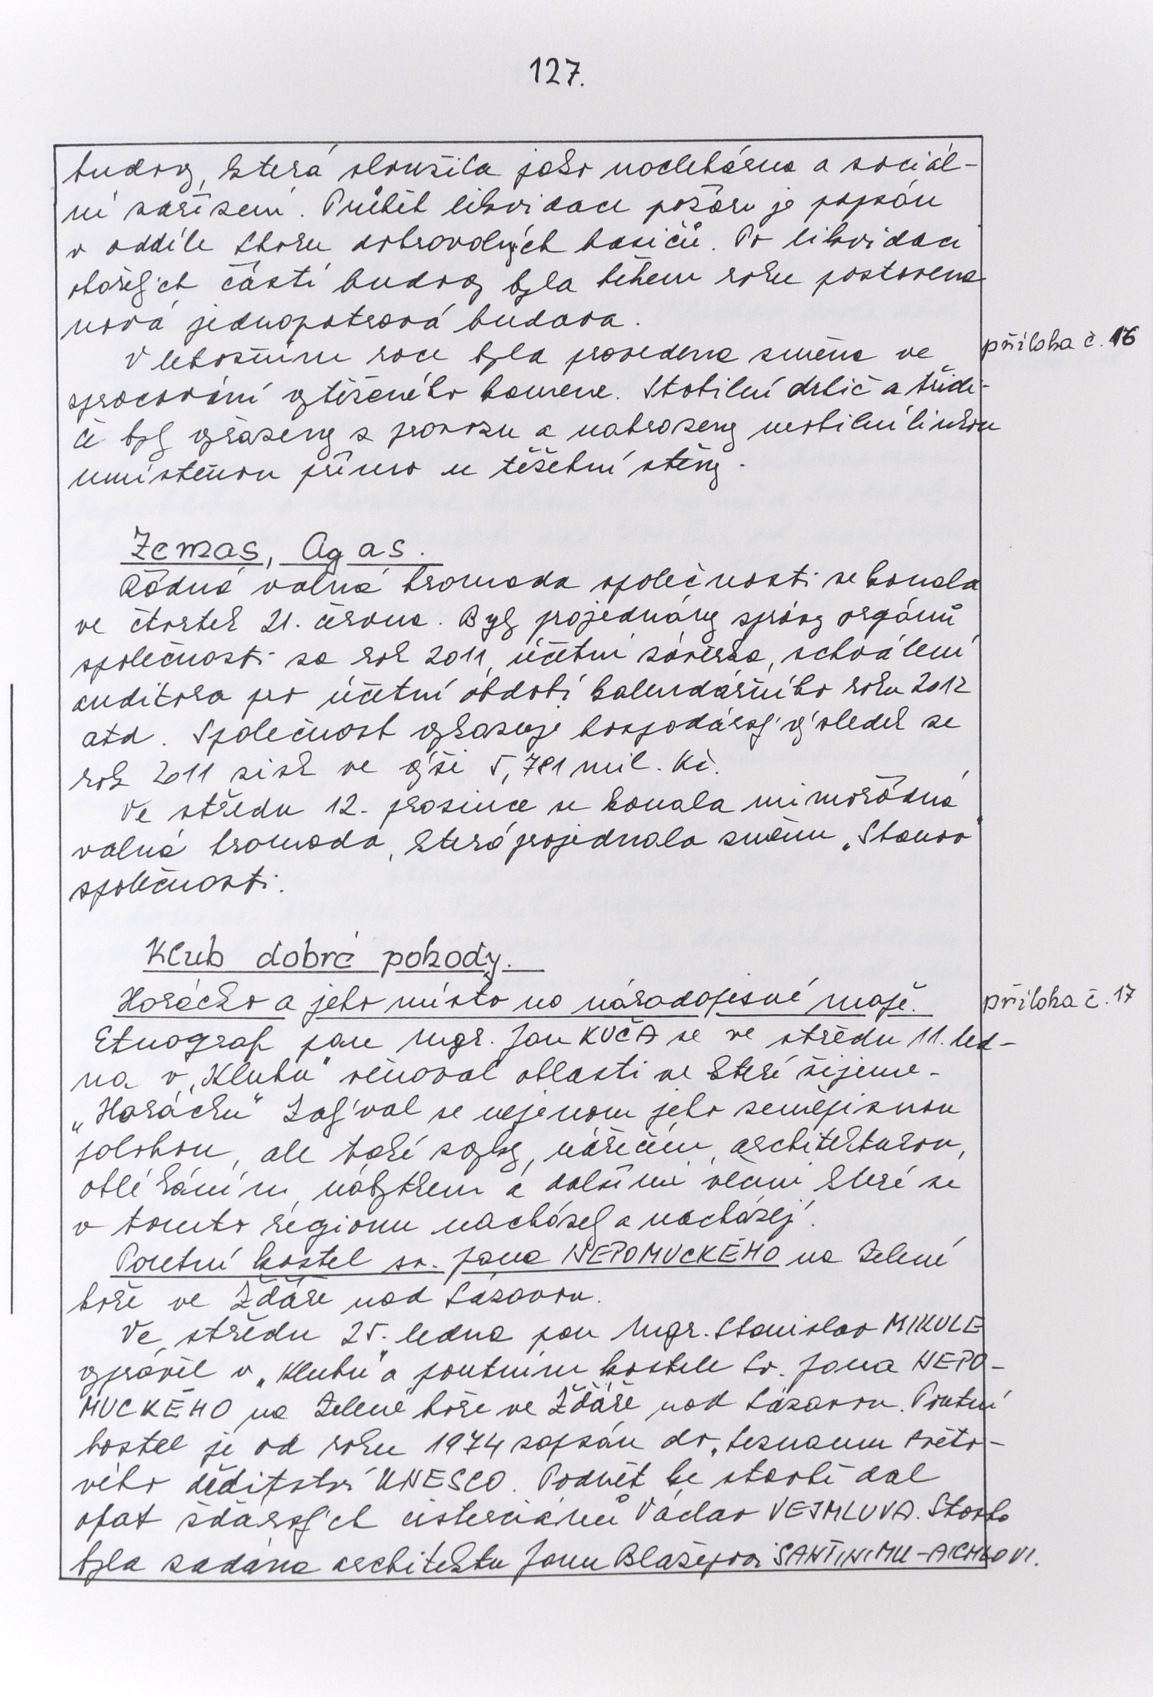 127.
budovy, která sloužila jako nocležárna a sociál-
ní zařízení. Průběh likvidace požáru je popsán
v oddíle Sboru dobrovolných hasičů. Po likvidaci
shořelých částí budovy byla během roku postavena
nová jednopatrová budova.
V letošním roce byla provedena změna ve
příloha č. 16
zpracování vytěženého kamene. Stabilní drtič a třídi-
či byly vyřazeny z provozu a nahrazeny mobilní linkou
umístěnou přímo u těžební stěny.
Zemas, Ag as.
Řádná valná hromada společnosti se konala
ve čtvrtek 21. června. Byly projednány zprávy orgánů
společnosti za rok 2011, účetní závěrka, schválení
auditora pro účetní období kalendářního roku 2012
atd. Společnost vykazuje hospodářský výsledek za
rok 2011 zisk ve výši 5,781 mil. Kč.
Ve středu 12. prosince se konala mimořádná
valná hromada, která projednala změnu „Stanov"
společnosti.
Klub dobré pohody.
Horácko a jeho místo na národopisné mapě.
příloha č. 17
Etnograf pan Mgr. Jan KUČA se ve středu 11. led-
na v „Klubu" věnoval oblasti ve které žijeme -
„Horácku" Zabýval se nejenom jeho zeměpisnou
polohou, ale také zvyky, nářečím, architekturou,
oblékáním, nábytkem a dalšími věcmi které se
v tomto régionu nacházely a nacházejí.
Poutní kostel sv. Jana NEPOMUCKÉHO na Zelené
hoře ve Žďáře nad Sázavou.
Ve středu 25. ledna pan Mgr. Stanislav MIKULE
vyprávěl v „Klubu" o poutním kostele Sv. Jana NEPO-
MUCKÉHO na Zelené hoře ve Žďáře nad Sázavou. Poutní
kostel je od roku 1974 zapsán do „Seznamu světo-
vého dědictví UNESCO. Podnět ke stavbě dal
opat žďárských cisterciánů Václav VEJMLUVA. Stavba
byla zadána architektu Janu Blažejovi SANTINIMU-AICHLOVI.